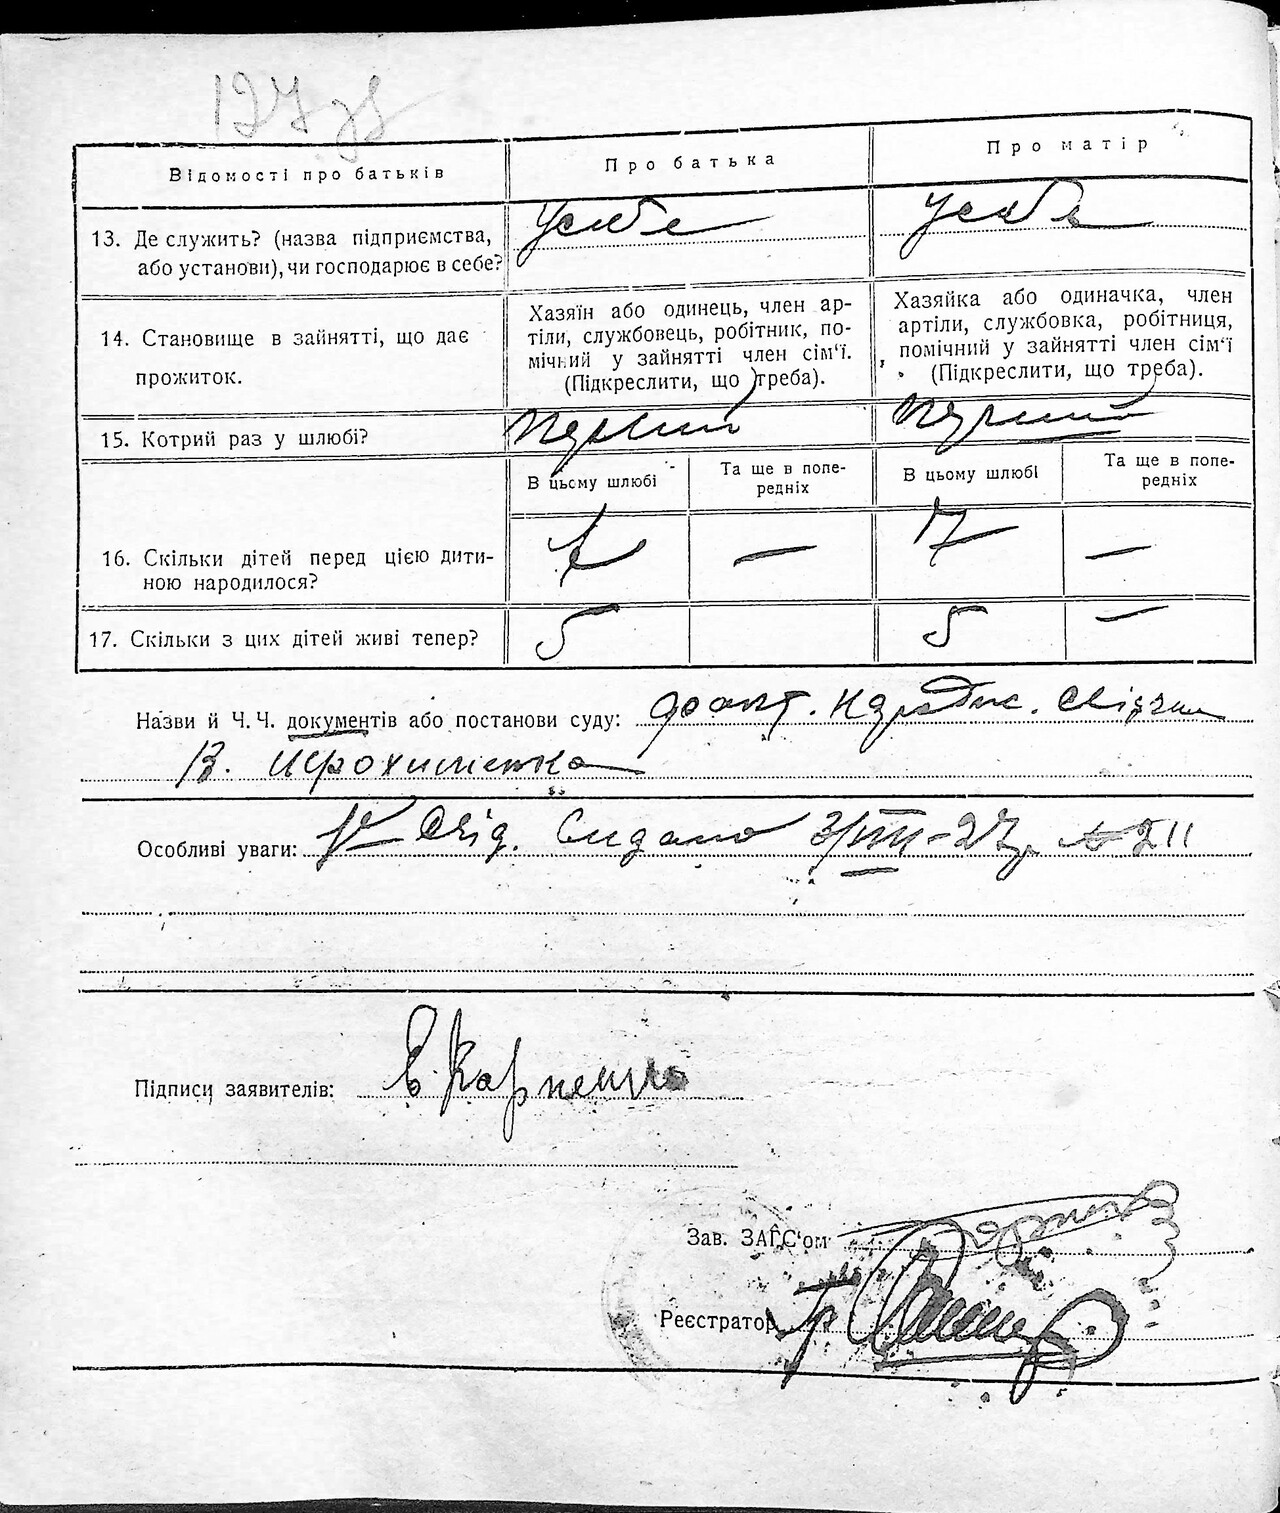 127 зв
Відомості про батьків
Про батька
Про матір
13. Де служить? (назва підприємства,
або установи), чи господарює в себе?
У себе
У себе
14. Становище в зайнятті, що дає
прожиток.
Хазяїн або одинець, член ар-
тіли, службовець, робітник, по-
мічний у зайнятті член сім'ї.
(Підкреслити, що треба).
Хазяйка або одиначка, член
артіли, службовка, робітниця,
помічний у зайнятті член сім'ї
(Підкреслити, що треба).
15. Котрий раз у шлюбі?
Перший
Перший
В цьому шлюбі
Та ще в попе-
редніх
В цьому шлюбі
Та ще в попе-
редніх
16. Скільки дітей перед цією дити-
ною народилося?
7
—
7
—
17. Скільки з цих дітей живі тепер?
5
5
—
Назви й Ч. Ч. документів або постанови суду:
В.
Особливі уваги: Свід. Видано 3/VIII-27р. № 211
Підписи заявителів: Є. Карпенко
Зав. ЗАГС'ом
Реєстратор